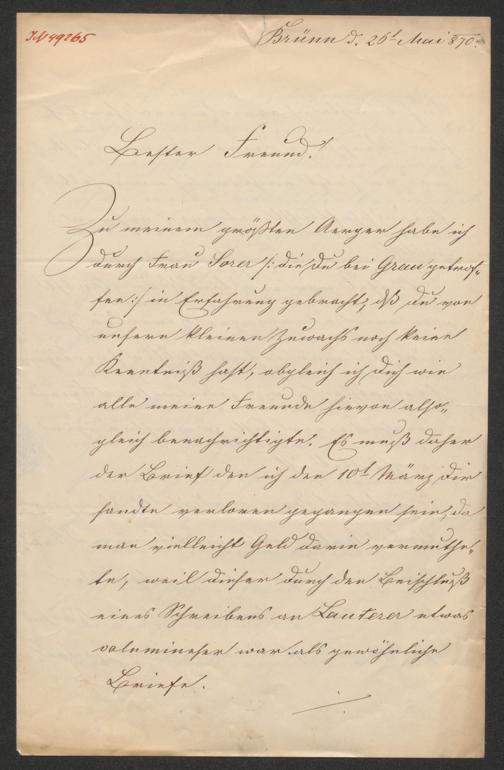 IN 49265
Brünn d. 26t Mai 870.
Bester Freund!
Zu meinem größten Aerger habe ich
durch Frau Sorer /: die Du bei Grau getrof-
fen :/ in Erfahrung gebracht, dß Du von
unsern kleinen Zuwachs noch keine
Kenntniß hast, obgleich ich Dich wie
alle meine Freunde hievon also-
gleich benachrichtigte. Es muß daher
der Brief den ich den 10t März Dir
sandte verloren gegangen sein, da
man vielleicht Geld darin vermuthe-
te, weil dieser durch den Beischluß
eines Schreibens an Lauterer etwas
volumineser war als gewöhnliche
Briefe.